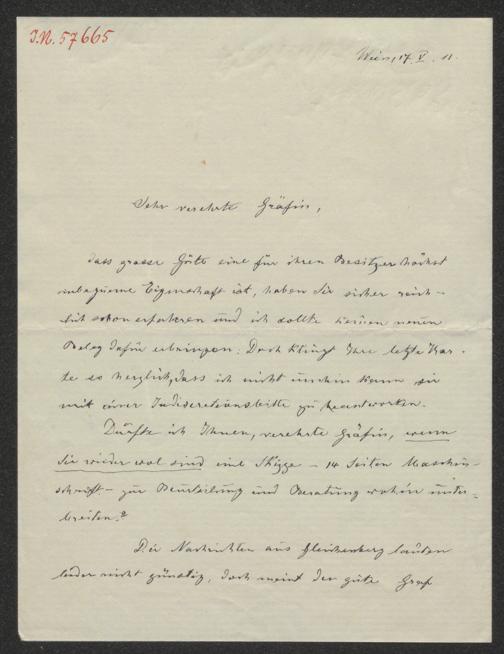 I.N. 57665
Wien, 17. V. 11.
Sehr verehrte Gräfin,
dass grosse Güte eine für ihren Besitzer höchst
unbequeme Eigenschaft ist, haben Sie sicher reich-
lich schon erfahren und ich sollte keinen neuen
Beleg dafür erbringen. Doch klingt Ihre letzte Kar-
te so herzlich, dass ich nicht umhin kann sie
mit einer Indiscretionsbitte zu beantworten.
Dürfte ich Ihnen, verehrte Gräfin, wenn
Sie wieder wol sind eine Skizze – 14 Seiten Maschin-
schrift – zur Beurteilung und Beratung wohin unter-
breiten?
Die Nachrichten aus Gleichenberg lauten
leider nicht günstig, doch meint der gute Graf